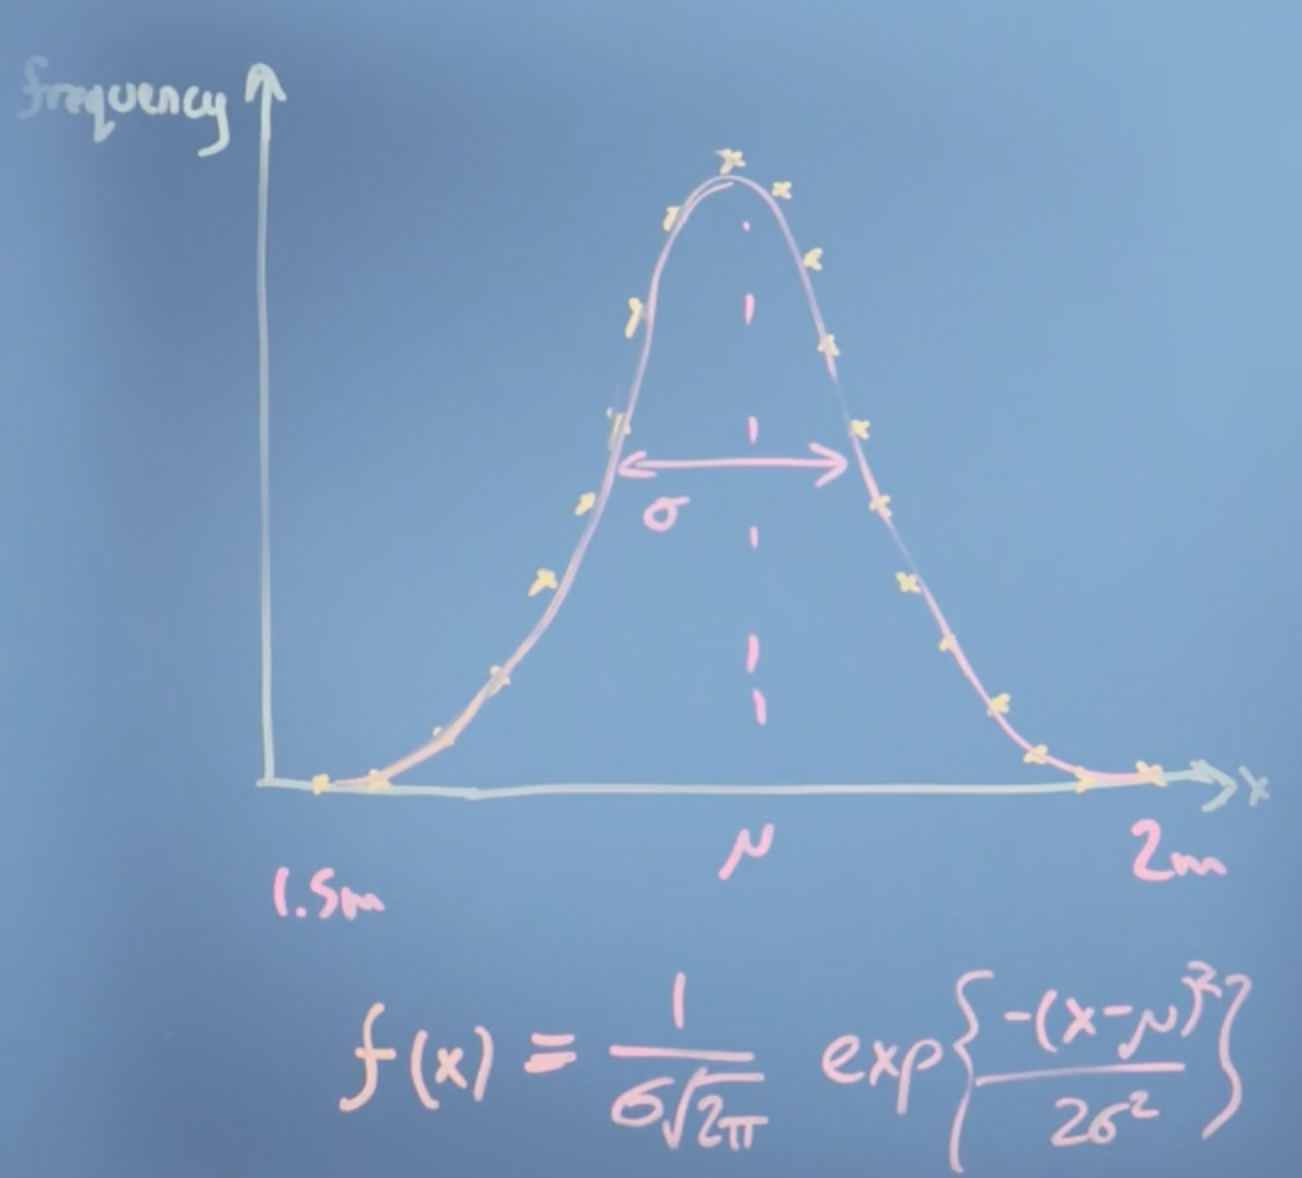 frequency
σ
x
μ
2m
1.5m
f(x) = 1/(σ√2π) exp{-(x-μ)²/2σ²}